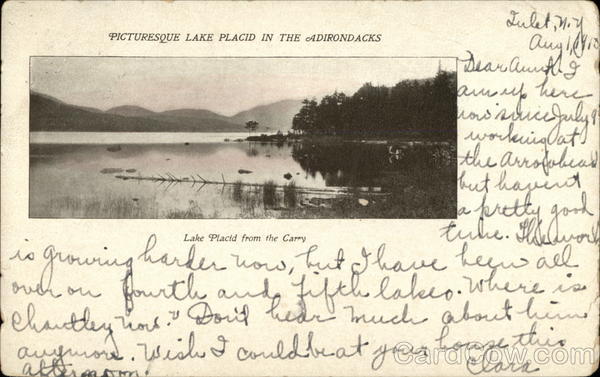 PICTURESQUE LAKE PLACID IN THE ADIRONDACKS
Lake Placid from the Carry
Inlet, N.Y
Aug 1, 1910
Dear Aunt. I
am up here
now since July 9th
working at
the Arrowhead
but haven't
a pretty good
time. The work
is growing harder now, but I have been all
over on fourth and fifth lakes. Where is
Chantley now? Don't hear much about him
anymore. Wish I could be at your house this
afternoon.
Clara
CardCow.com